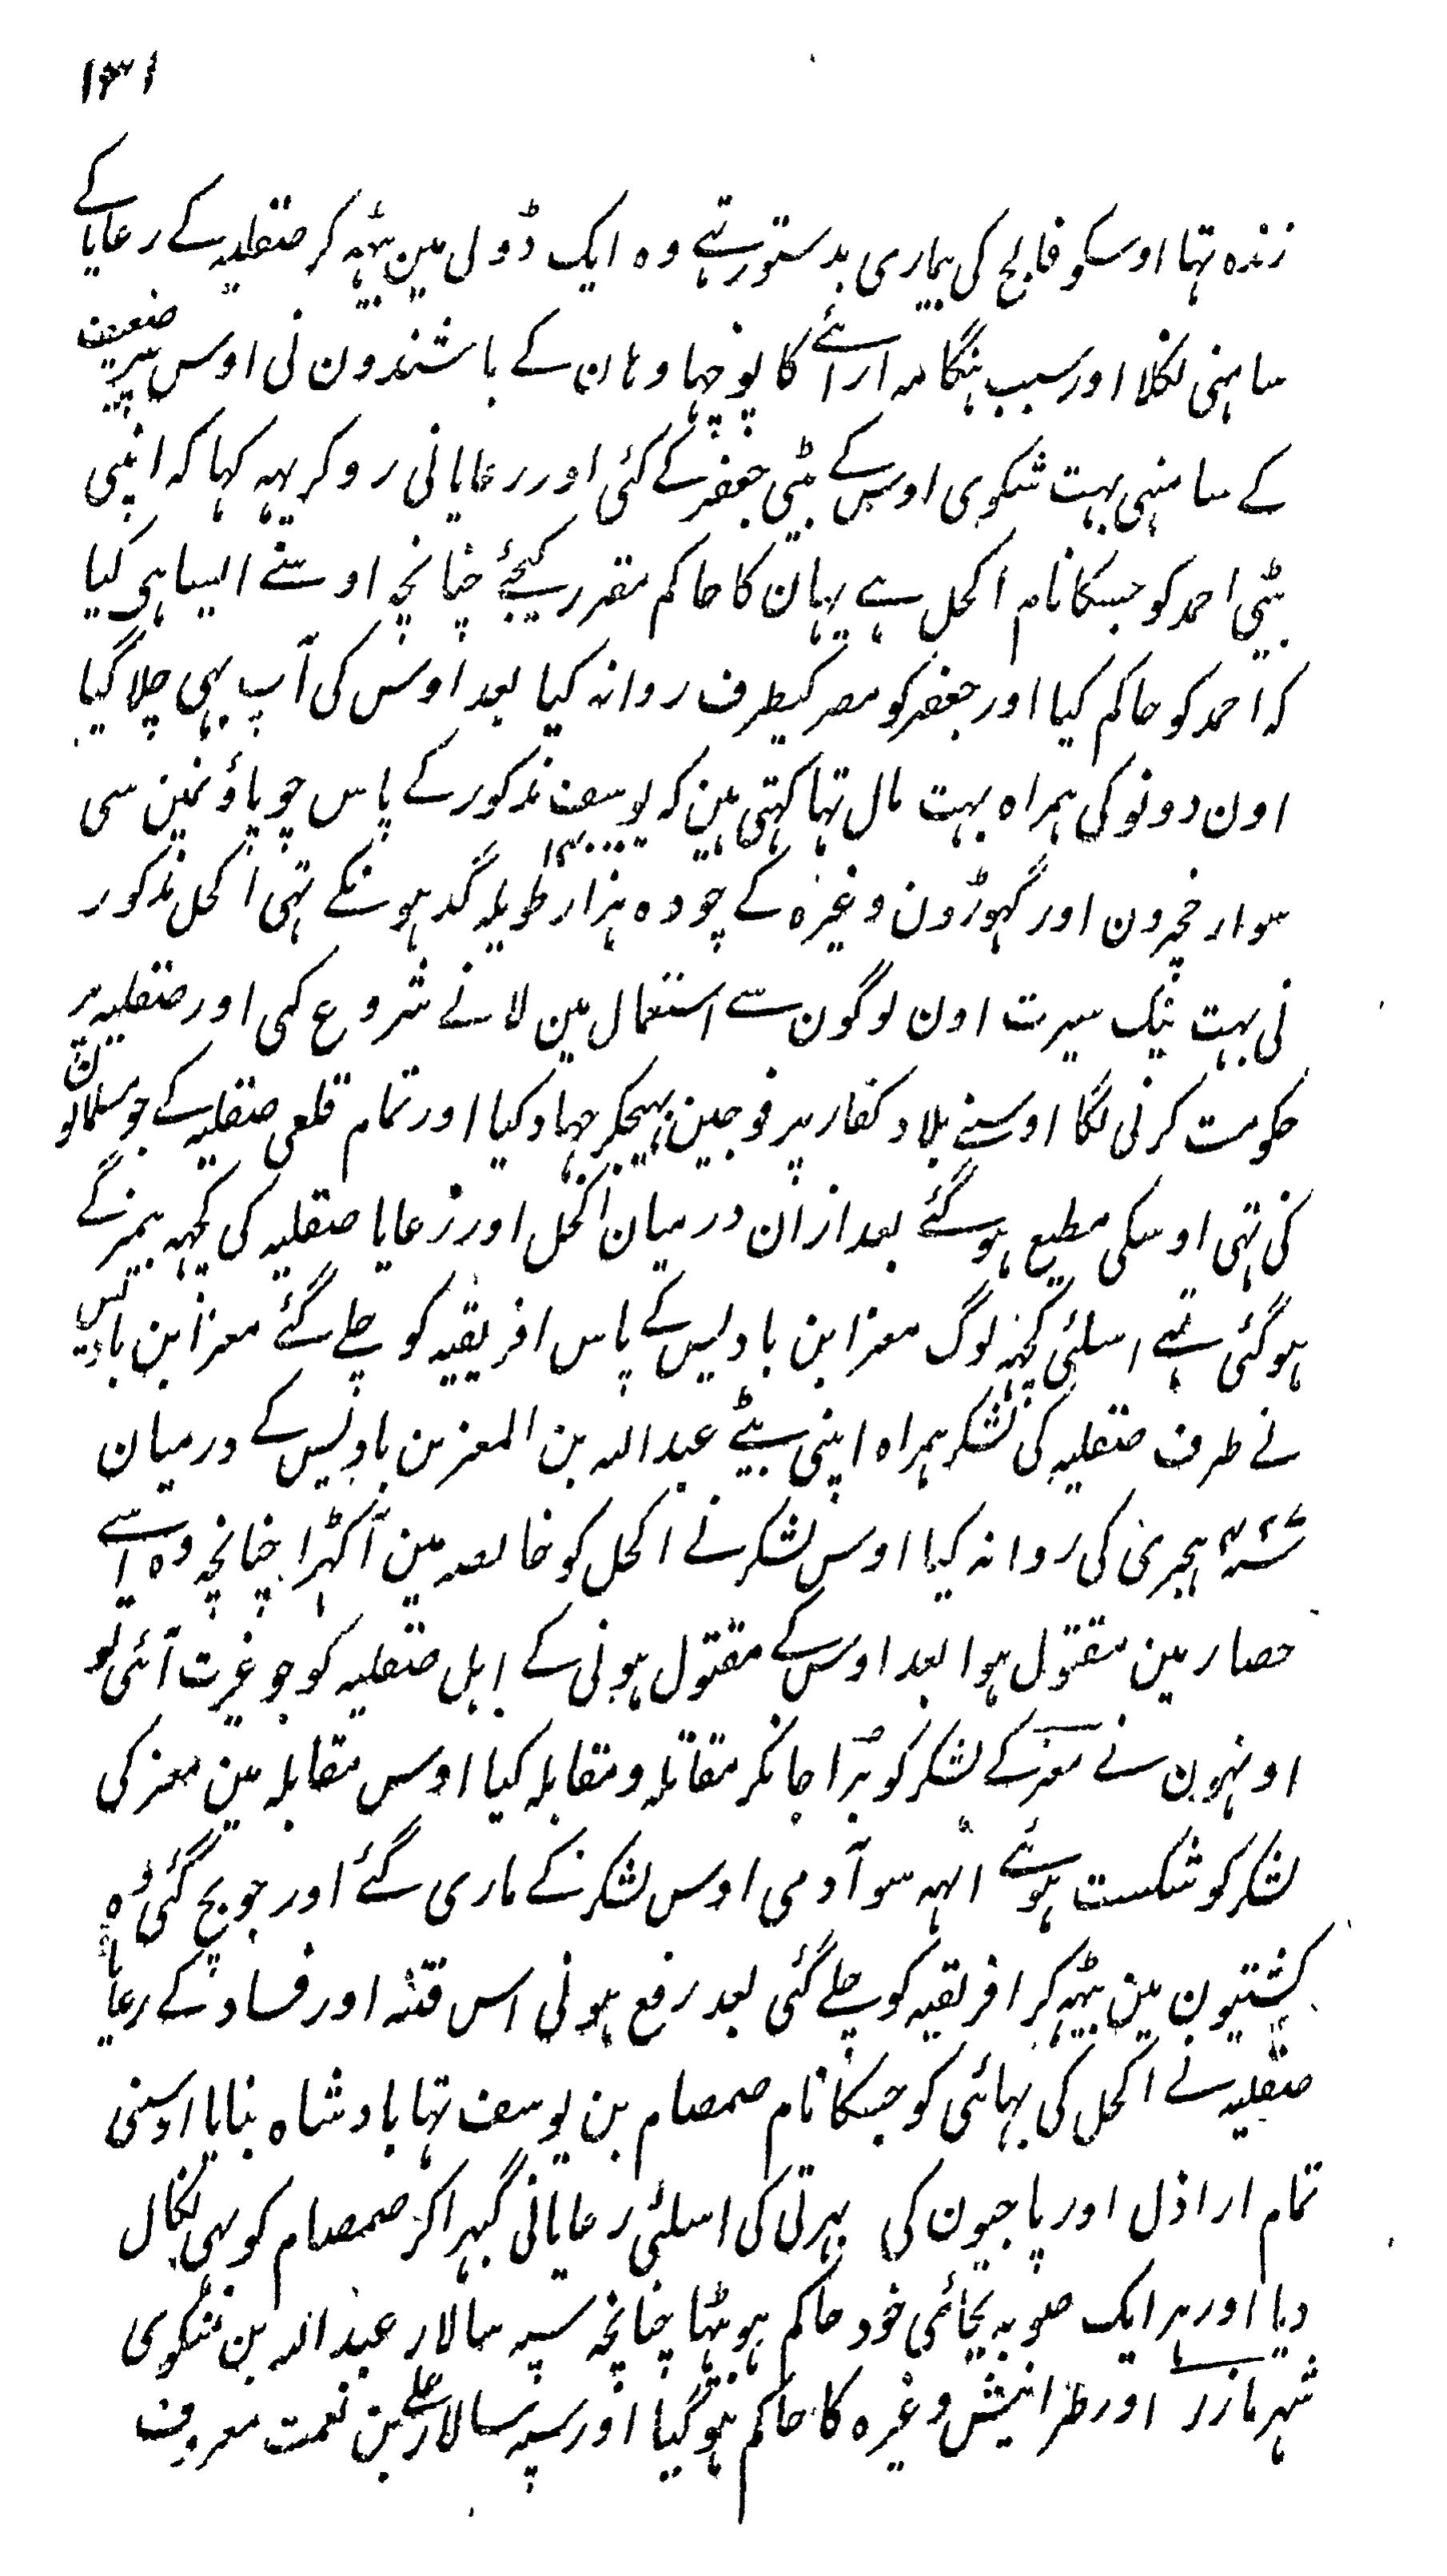 ۱۳۱
زندہ تہا اوسکو فالج کی بیماری بدستور تہے وہ ایک ڈول مین بیٹھہ کر صقلیہ کے رعایا کے
سامنی نکلا اور سبب ہنگامہ ارائے کا پوچہا وہان کے باشندون نی اوس پیر ضعیف
کے سامنہی بہت شکوی اوس کے بیٹی جعفر کے کئی اور رعایا نی رو کر یہہ کہا کہ اپنی
بیٹی احمد کو جسکا نام اکحل ہے یہان کا حاکم مقرر کیجئے چنانچہ اوسنے ایسا ہی کیا
کہ احمد کو حاکم کیا اور جعفر کو مصر کیطرف روانہ کیا بعد اوس کی آپ بہی چلا گیا
اون دونو کی ہمراہ بہت مال تہا کہتی ہین کہ یوسف مذکور کے پاس چوپاؤنمین سی
سوار خچرون اور گہوڑون وغیرہ کے چودہ ہزار ۱۴۰۰۰ طویلہ گد ہونکے تہی اکحل مذکور
نی بہت نیک سیرت اون لوگون سے استعمال مین لانے شروع کی اور صقلیہ پر
حکومت کرنی لگا اوسنے بلاد کفار پر فوجین بہیجکر جہاد کیا اور تمام قلعی صقلیہ کے جو مسلمانون
کی تہی اوسکی مطیع ہو گئے بعد ازان درمیان اکحل اور رعایا صقلیہ کی کچہہ بیمزگے
ہو گئی تہے اسلئی کچہہ لوگ معز ابن بادلیس کے پاس افریقیہ کو چلے گئے معز ابن بادیس
نے طرف صقلیہ کی لشکر ہمراہ اپنی بیٹے عبد اللہ بن المعز بن بادلیس کے درمیان
۴۲۷؁ ہجری کی روانہ کیا اوس لشکر نے اکحل کو خالصہ مین آگہڑا چنانچہ وہ اسے
حصار مین مقتول ہوا بعد اوس کے مقتول ہونی کے اہل صقلیہ کو جو غیرت آئی تو
اونہون نے معز کے لشکر کو بڑا جانکر مقاتلہ و مقابلہ کیا اوس مقابلہ مین معز کی
لشکر کو شکست ہوئے اٹہہ سو آدمی اوس لشکر کے ماری گئے اور جو بچ گئی وہ
کشتیون مین بیٹہہ کر افریقیہ کو چلے گئی بعد رفع ہونی اس فتنہ اور فساد کے رعایا
صقلیہ نے اکحل کی بہائی کو جسکا نام صمصام بن یوسف تہا بادشاہ بنایا اوسنی
تمام اراذل اور پاجیون کی بہرتی کی اسلئی رعایا نی گہبرا کر صمصام کو بہی نکال
دیا اور ہر ایک صوبہ بجائی خود حاکم ہو بیٹہا چنانچہ سپہ سالار عبد اللہ بن منکوی
شہر مازر اور طرابنیش وغیرہ کا حاکم ہو گیا اور سپہ سالار علی بن نعمت معروف